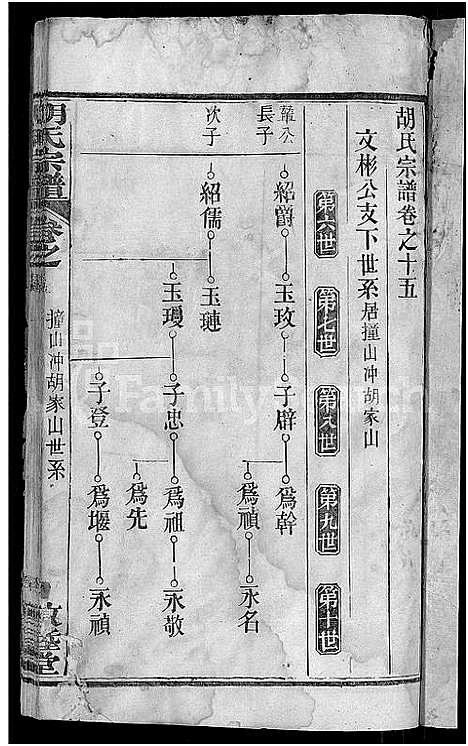 胡氏宗譜卷之十五
文彬公支下世系居撞山冲胡家山
第六世 第七世 第八世 第九世 第十世
華公長子 紹爵 玉玫 子辟 爲幹
爲禎 永名
次子 紹儒 玉璉
玉瓊 子忠 爲祖 永敬
爲先
子登 爲堰 永禎
胡氏宗譜 卷之
撞山冲胡家山世系
敦睦堂
Family